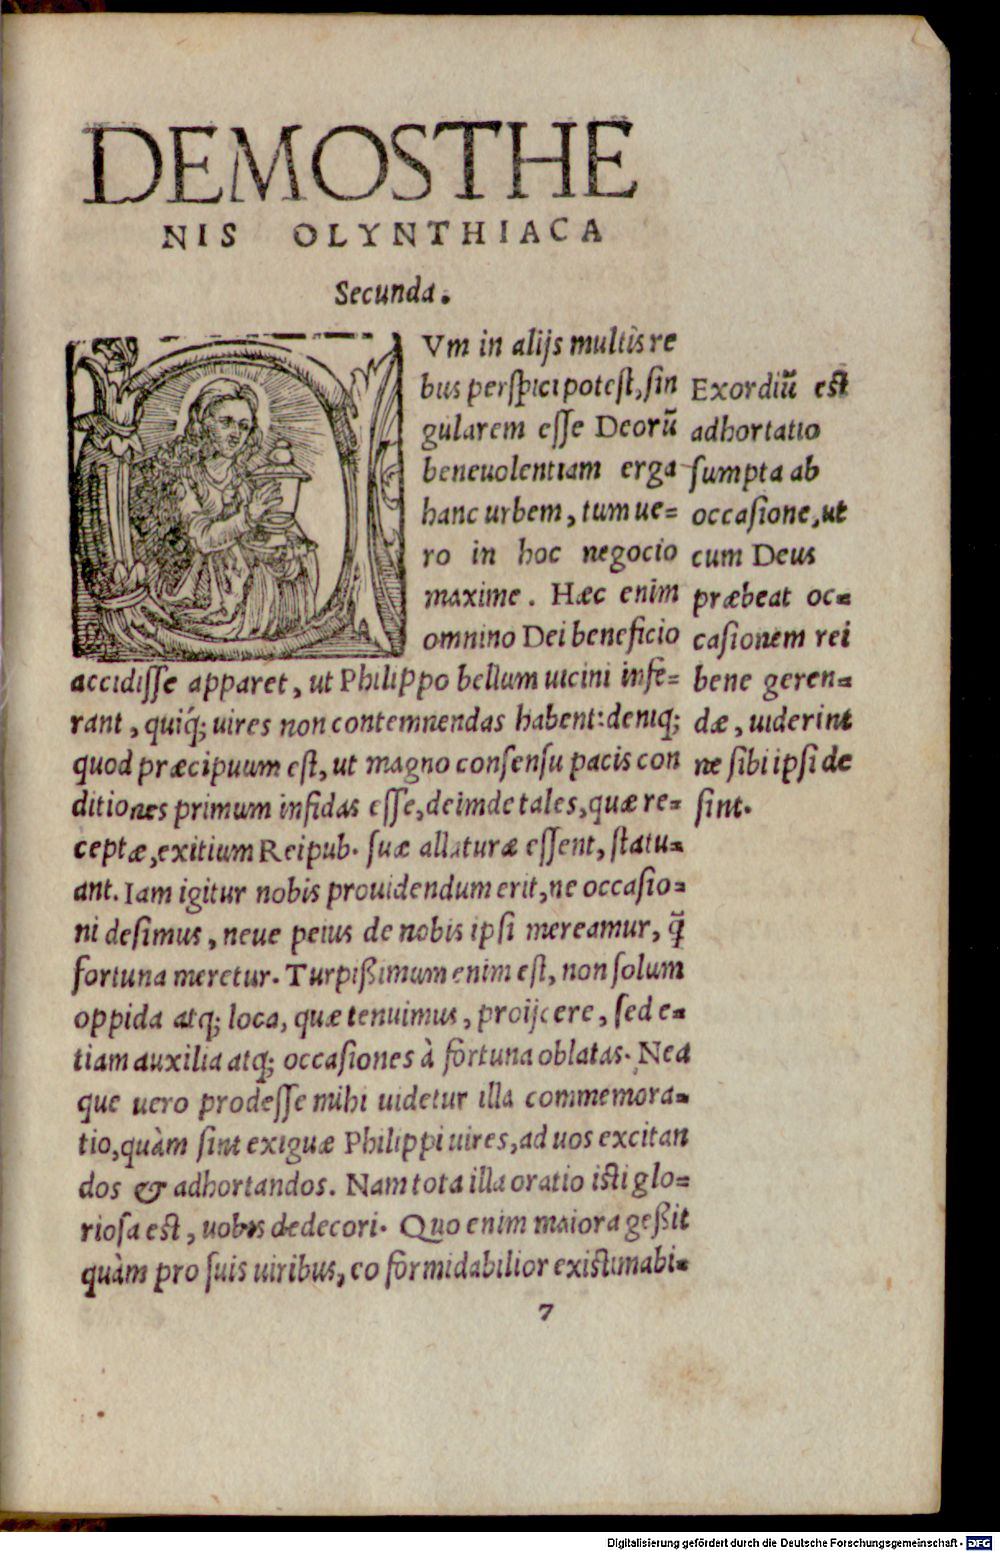 DEMOSTHE
NIS OLYNTHIACA
Secunda.
CVm in alijs multis re
bus perspici potest, sin
gularem esse Deorū
beneuolentiam erga
hanc urbem, tum ue=
ro in hoc negocio
maxime. Hæc enim
omnino Dei beneficio
accidisse apparet, ut Philippo bellum uicini infe=
rant, quiq́; uires non contemnendas habent: deniq;
quod præcipuum est, ut magno consensu pacis con
ditiones primum infidas esse, deimde tales, quæ re=
ceptæ, exitium Reipub. suæ allaturæ essent, statu=
ant. Iam igitur nobis prouidendum erit, ne occasio=
ni desimus, neue peius de nobis ipsi mereamur, q̃
fortuna meretur. Turpißimum enim est, non solum
oppida atq; loca, quæ tenuimus, proijcere, sed e=
tiam auxilia atq; occasiones à fortuna oblatas. Nea
que uero prodesse mihi uidetur illa commemora=
tio, quàm sint exiguæ Philippi uires, ad uos excitan
dos & adhortandos. Nam tota illa oratio isti glo=
riosa est, uobis dedecori. Quo enim maiora geßit
quàm pro suis uiribus, eo formidabilior existimabi=
7
Exordiū est
adhortatio
sumpta ab
occasione, ut
cum Deus
præbeat oc=
casionem rei
bene geren=
dæ, uiderint
ne sibi ipsi de
sint.
Digitalisierung gefördert durch die Deutsche Forschungsgemeinschaft - DFG